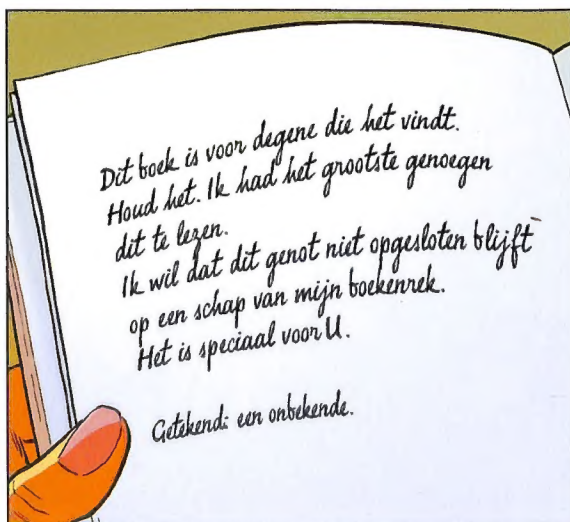 Dit boek is voor degene die het vindt.
Houd het. Ik had het grootste genoegen
dit te lezen.
Ik wil dat dit genot niet opgesloten blijft
op een schap van mijn boekenrek.
Het is speciaal voor U.
Getekend: een onbekende.